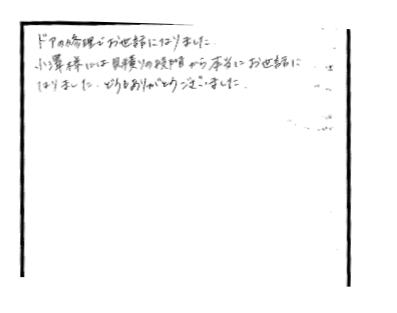 ドアの修理でお世話になりました。
小澤様には見積りの段階から本当にお世話に
なりました。どうもありがとうございました。